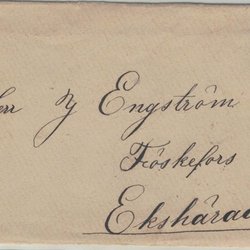 Engström
Föskefors
Ekshärad